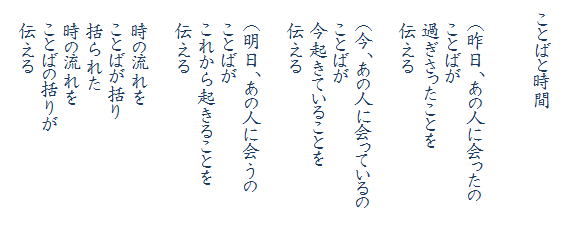 ことばと時間
(昨日、あの人に会ったの
ことばが
過ぎさったことを
伝える
(今、あの人に会っているの
ことばが
今起きていることを
伝える
(明日、あの人に会うの
ことばが
これから起きることを
伝える
時の流れを
ことばが括り
括られた
時の流れを
ことばの括りが
伝える